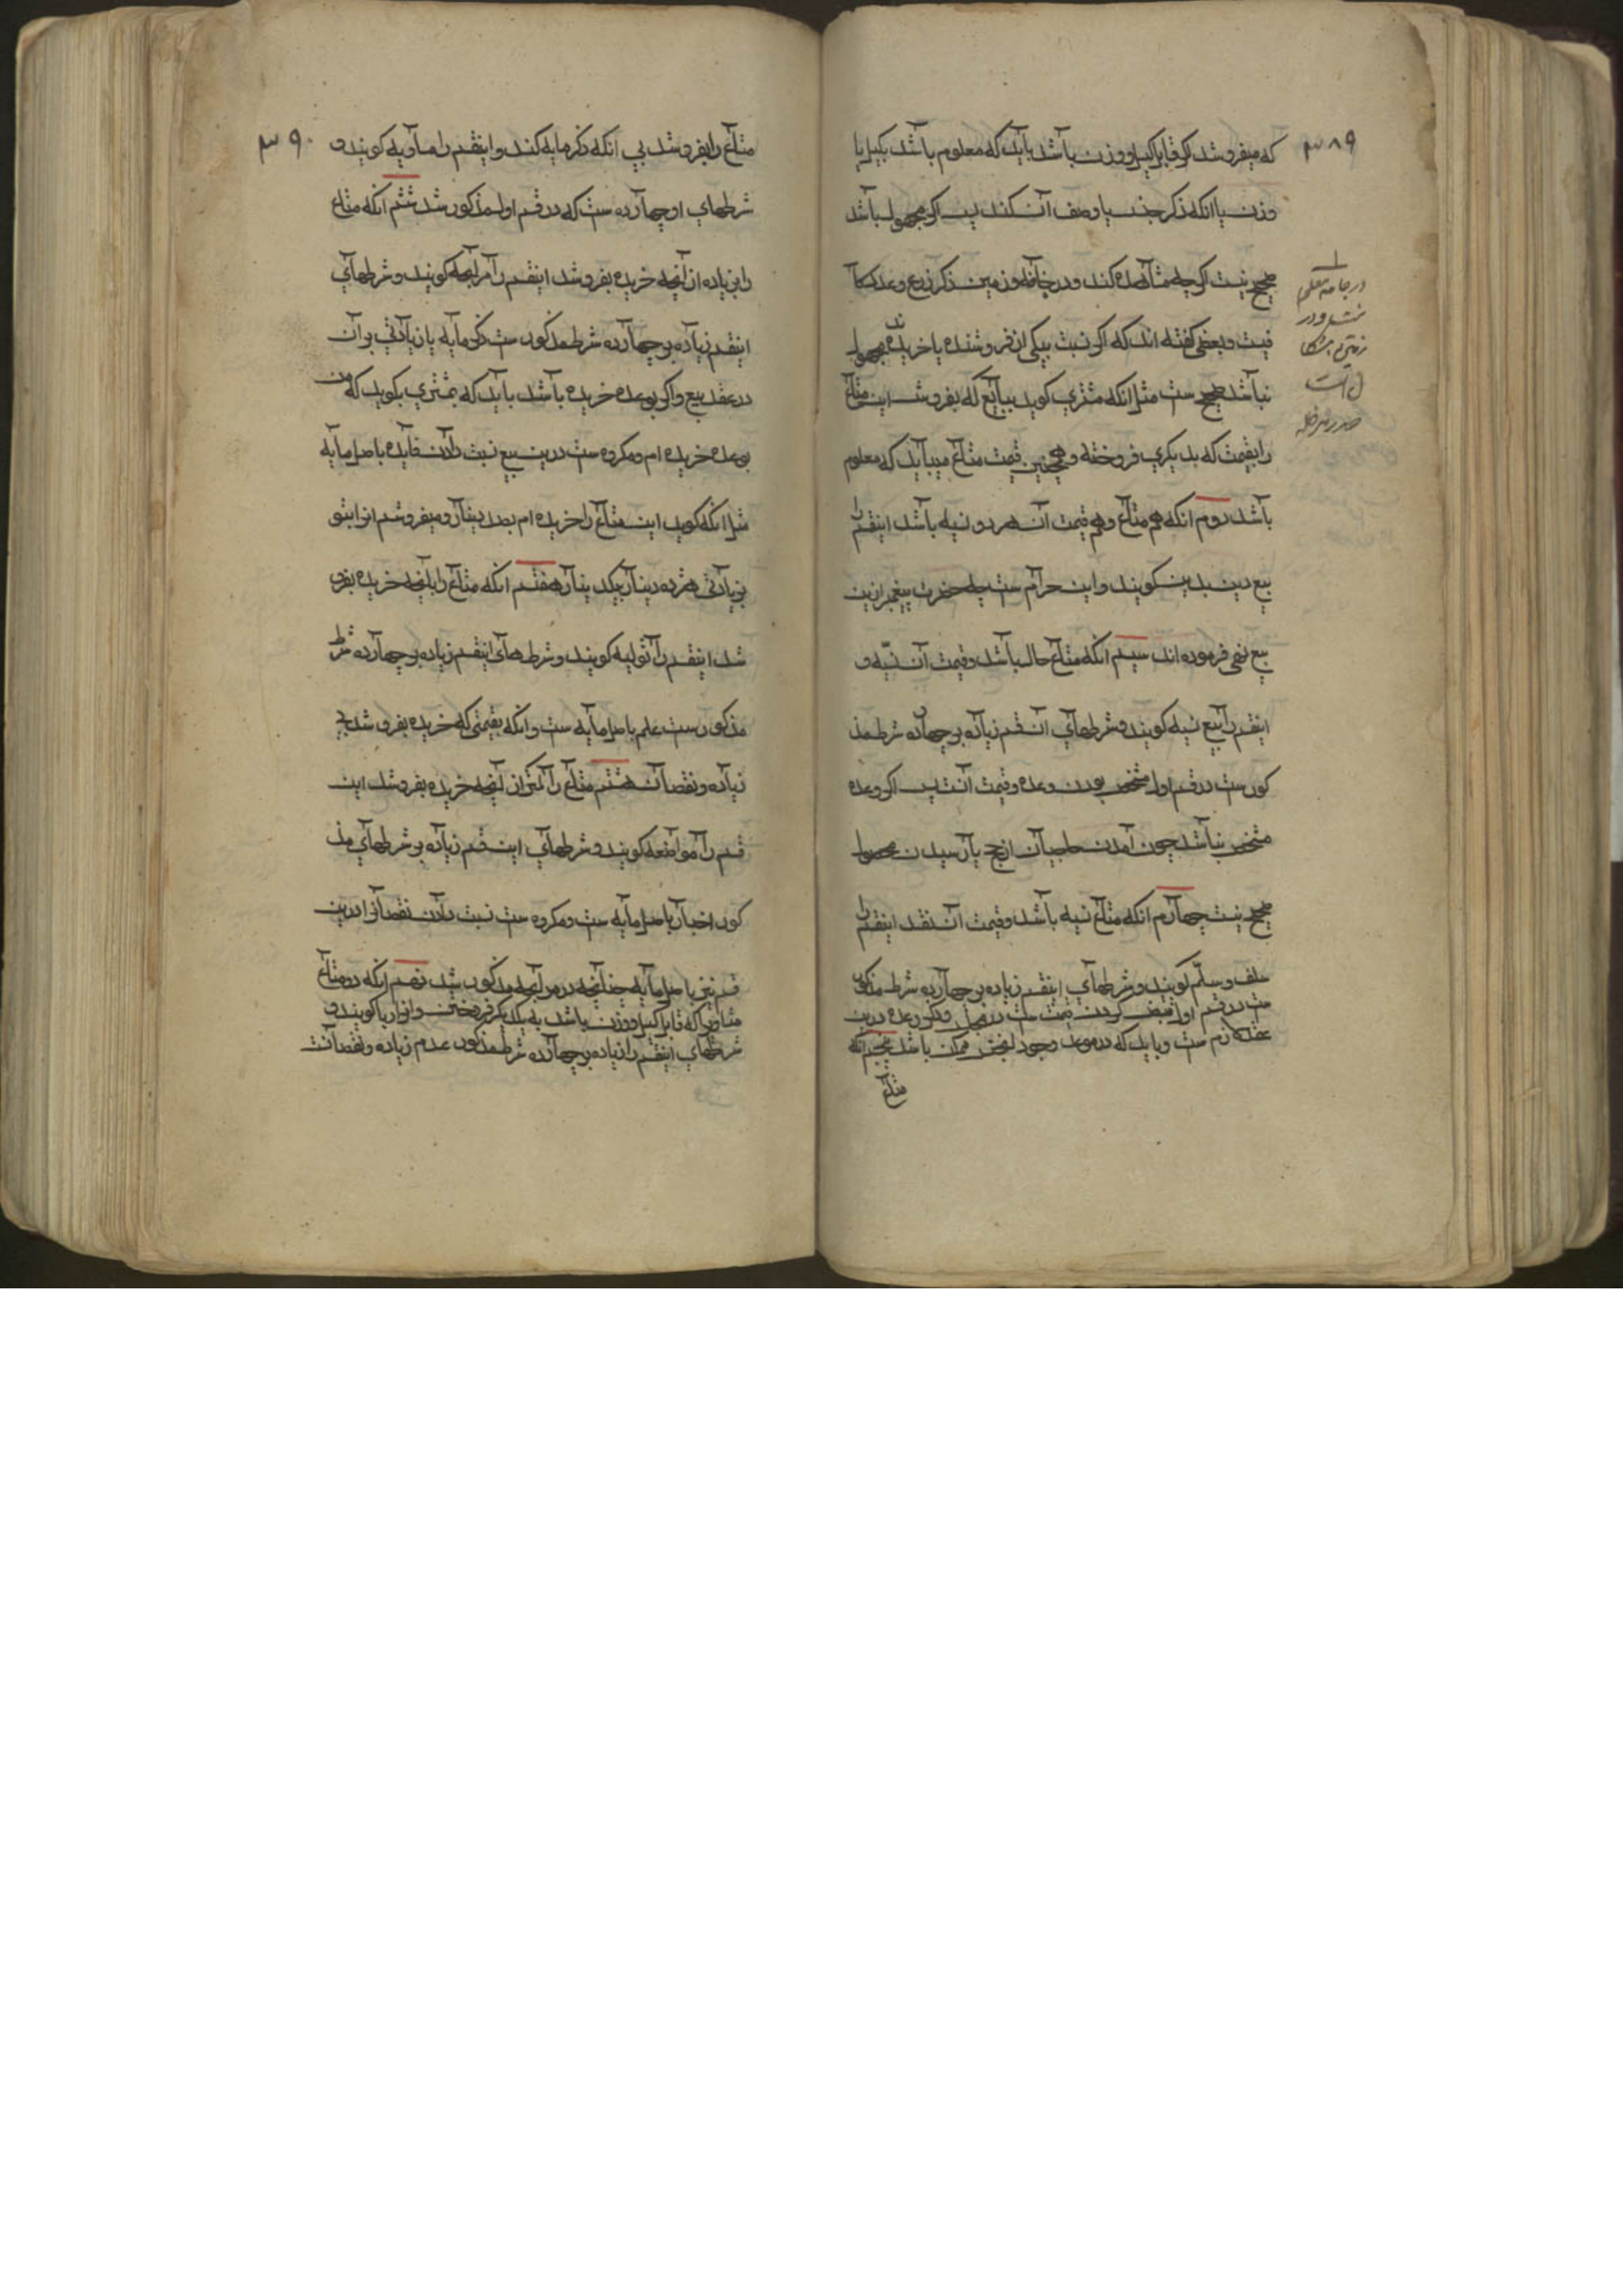 ۳۸۹
که میفروشد اگر قابل کیل و وزن باشد باید که معلوم باشد بکیل یا
وزن یا انکه ذکر جنس یا وصف آن کند پس اگر مجهول باشد
صحیح نیست اگرچه مشاهده کند و در جامه و زمین ذکر ذرع و عدد
نیست و بعضی گفته اند که اگر نسبت بیکی از فروشنده یا خریدنده مجهول
نباشد صحیح ست مثل انکه مشتری کوید ببایع که بفروش این متاع
را بقیمت که بدیکری فروخته و همچنین قیمت متاع میباید که معلوم
باشد دوم انکه هم متاع و هم قیمت آن هر دو نسیه باشد اینقسم را
بیع دین بدین کویند و این حرام ست چه حضرت پیغمبر ازین
بیع نهی فرموده اند سیم انکه متاع حال باشد و قیمت آن نسیه و
اینقسم را بیع نسیه کویند و شرطهای آن قسم زیاده بر چهارده شرط مذ
کورست در قسم اول مشخص بودن وعده و قیمت آنست پس اگر وعده
مشخص نباشد چون آمدن حاجیان از حج یا رسیدن محصول
صحیح نیست چهارم انکه متاع نسیه باشد و قیمت آن نقد اینقسم را
سلف و سلم کویند و شرطهای اینقسم زیاده بر چهارده شرط مذکور
ست در قسم اول قبض کردن قیمت ست در مجلس و ذکر وعده درین
عقد لازم ست و باید که در موعد وجود لجنس ممکن باشد پنجم انکه
متاع
در جامه
و در
است
صدر مدظله
۳۹۰
متاع را بفروشد بی انکه ذکر مایه کند و اینقسم را مساومه کویند و
شرطهای او چهارده ست که در قسم اول مذکور شد ششم انکه متاع
را بزیاده از آنچه خریده بفروشد اینقسم را مرابحه کویند و شرطهای
اینقسم زیاده بر چهارده شرط مذکور ست ذکر مایه یا زیادتی بر آن
در عقد بیع و اگر بوعده خریده باشد باید که بمشتری بکوید که من
بوعده خریده ام و مکروه ست درین بیع نسبت دادن فایده باصل مایه
مثل انکه کوید این متاع را خریده ام بصد دینار و میفروشم انرا بتو
بزیادتی هر ده دینار یکدینار هفتم انکه متاع را بآنچه خریده بفرو
شد اینقسم را تولیه کویند و شرطهای اینقسم زیاده بر چهارده شرط
مذکور ست علم باصل مایه ست و انکه بقیمتی که خریده بفروشد بی
زیاده و نقصان هشتم متاع را کمتر از آنچه خریده بفروشد این
قسم را مواضعه کویند و شرطهای این قسم زیاده بر شرطهای مذ
کور اخبار باصل مایه ست و مکروه ست نسبت دادن نقصان درین
قسم نیز باصل مایه چنانچه در مرابحه مذکور شد نهم انکه دو متاع
متساوی که قابل کیل و وزن باشد به یکدیکر فروختن و انرا ربا کویند و
شرطهای اینقسم را زیاده بر چهارده شرط مذکور عدم زیاده و نقصانست